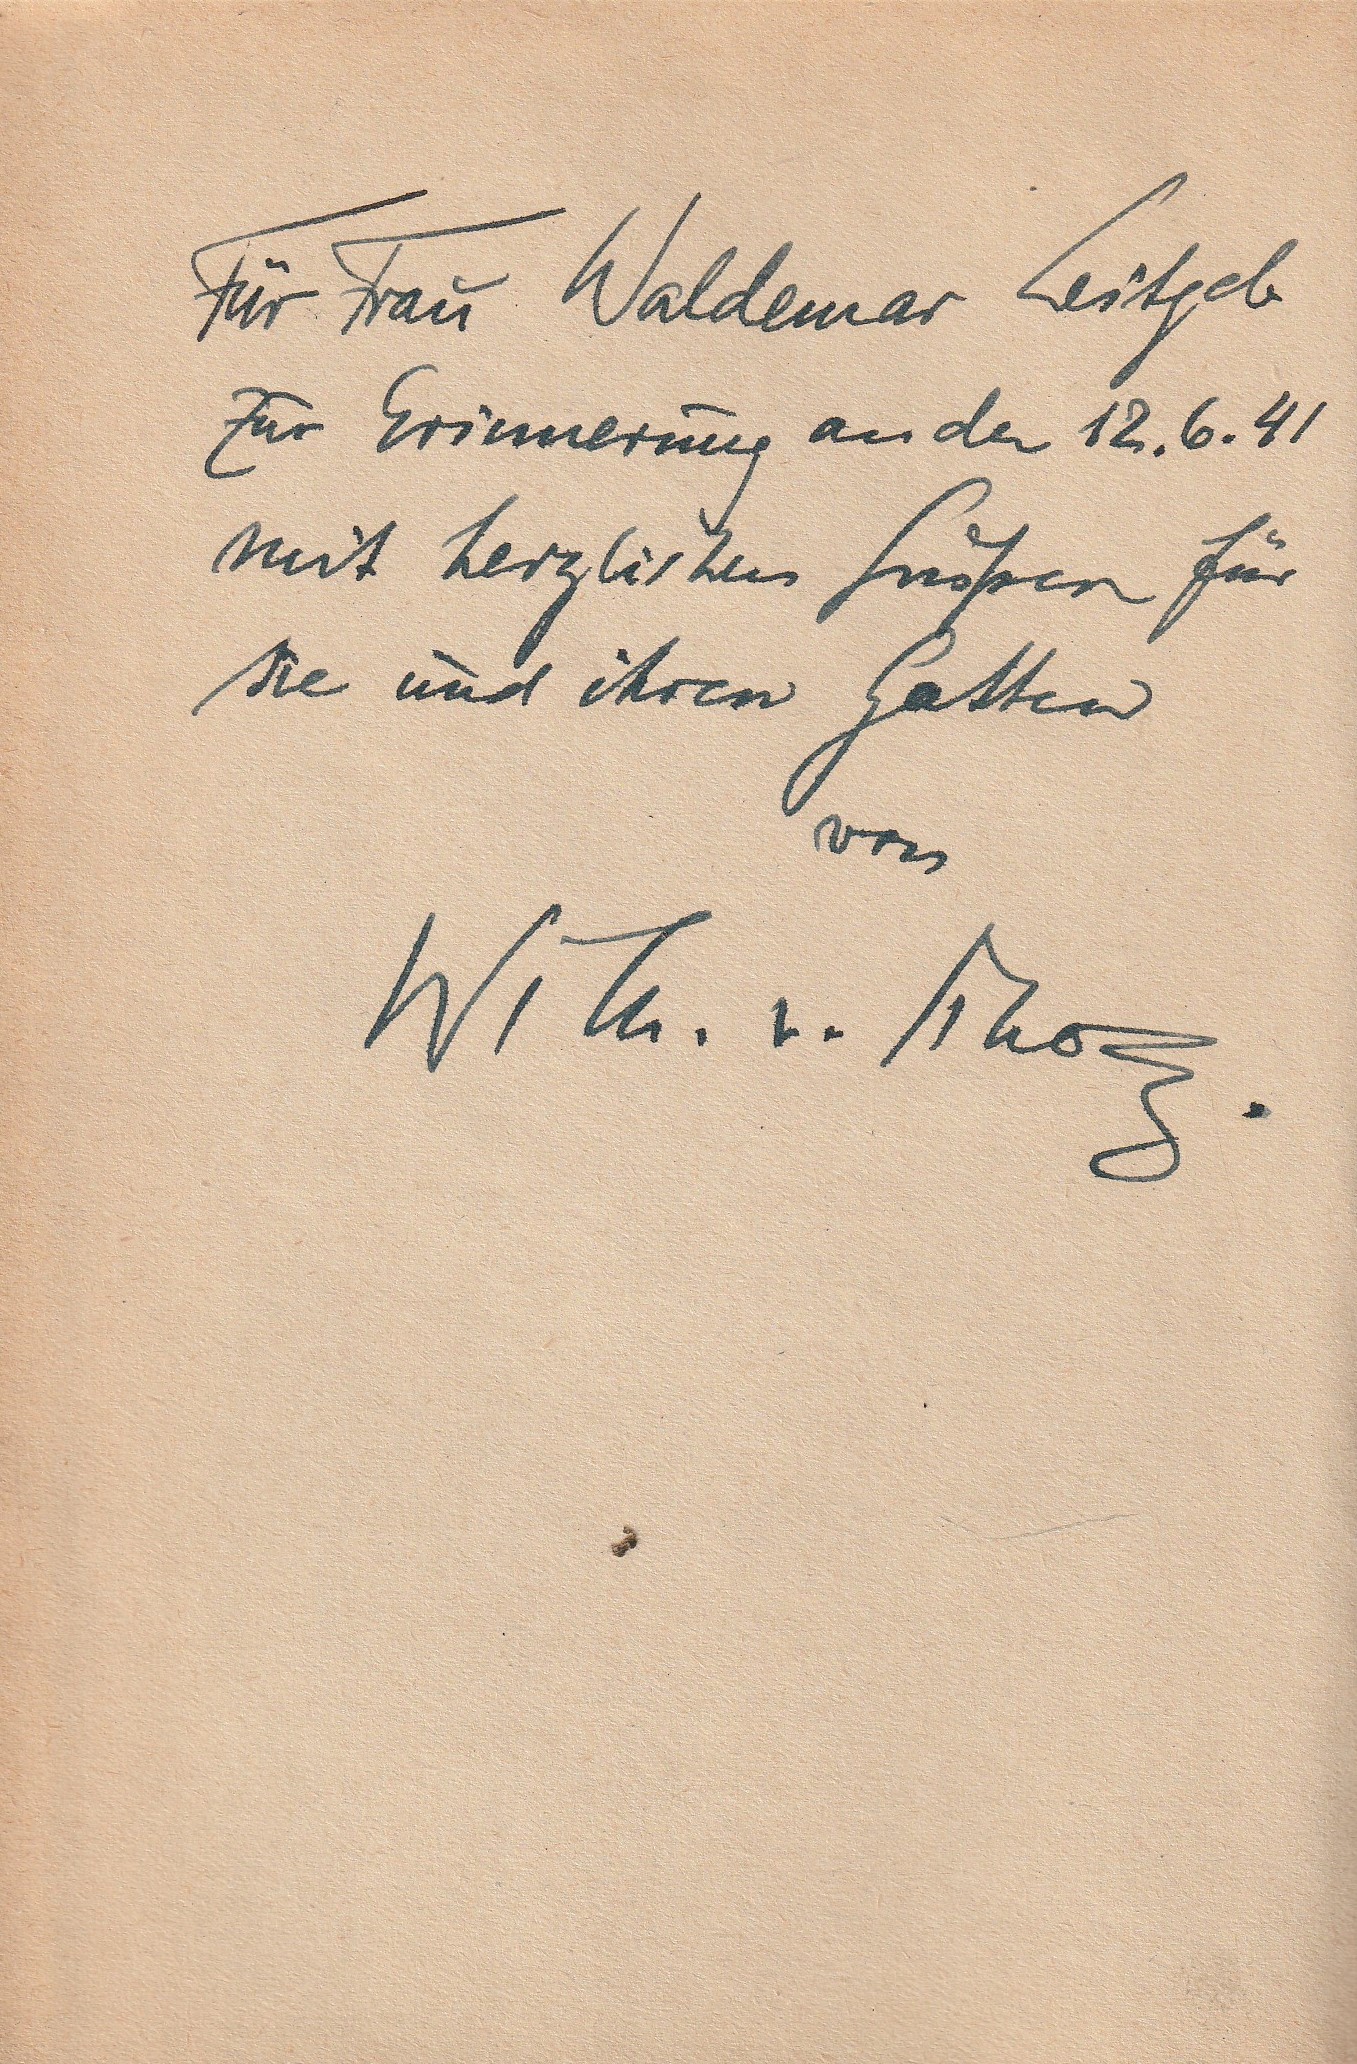 Für Frau Waldemar Leitgeb
zur Erinnerung an den 12.6.41
mit herzlichen Grüßen für
sie und ihren Gatten
von
Wilh. v. Scholz.